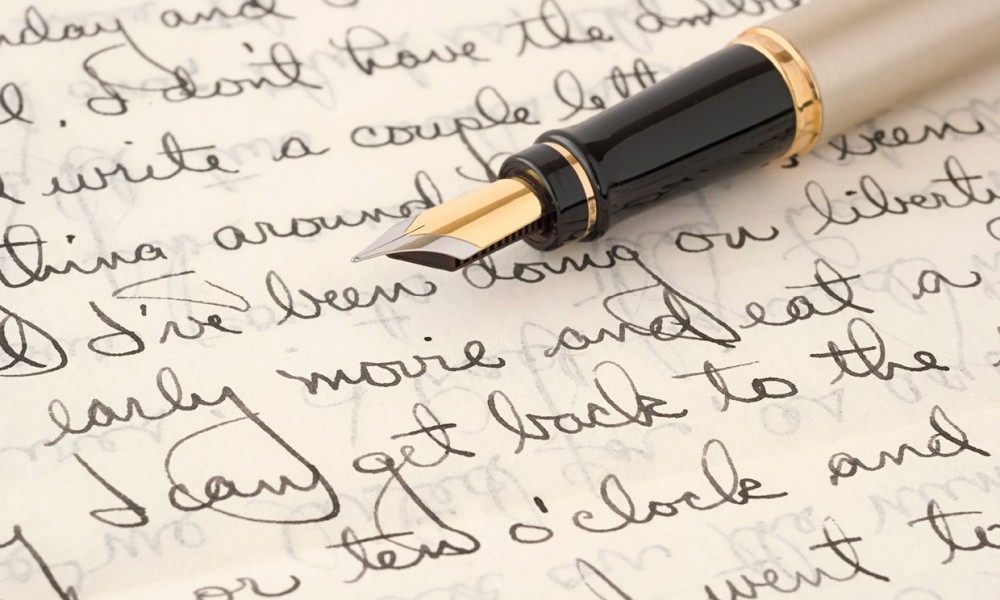 and
I don't have the
write a couple
around been
I've been doing on liberty
early movie and eat a
I can get back to the
or ten o'clock and
I went to